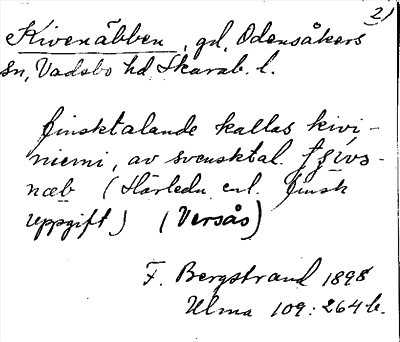 2)
Kivenäbben, gd, Odensåkers
sn, Vadsbo hd Skarab. l.
finsktalande kallas kivi-
niemi, av svensktal.
näb (Härledn. enl. finsk
uppgift) (Versås)
F. Bergstrand 1898
Ulma 109: 264 b.